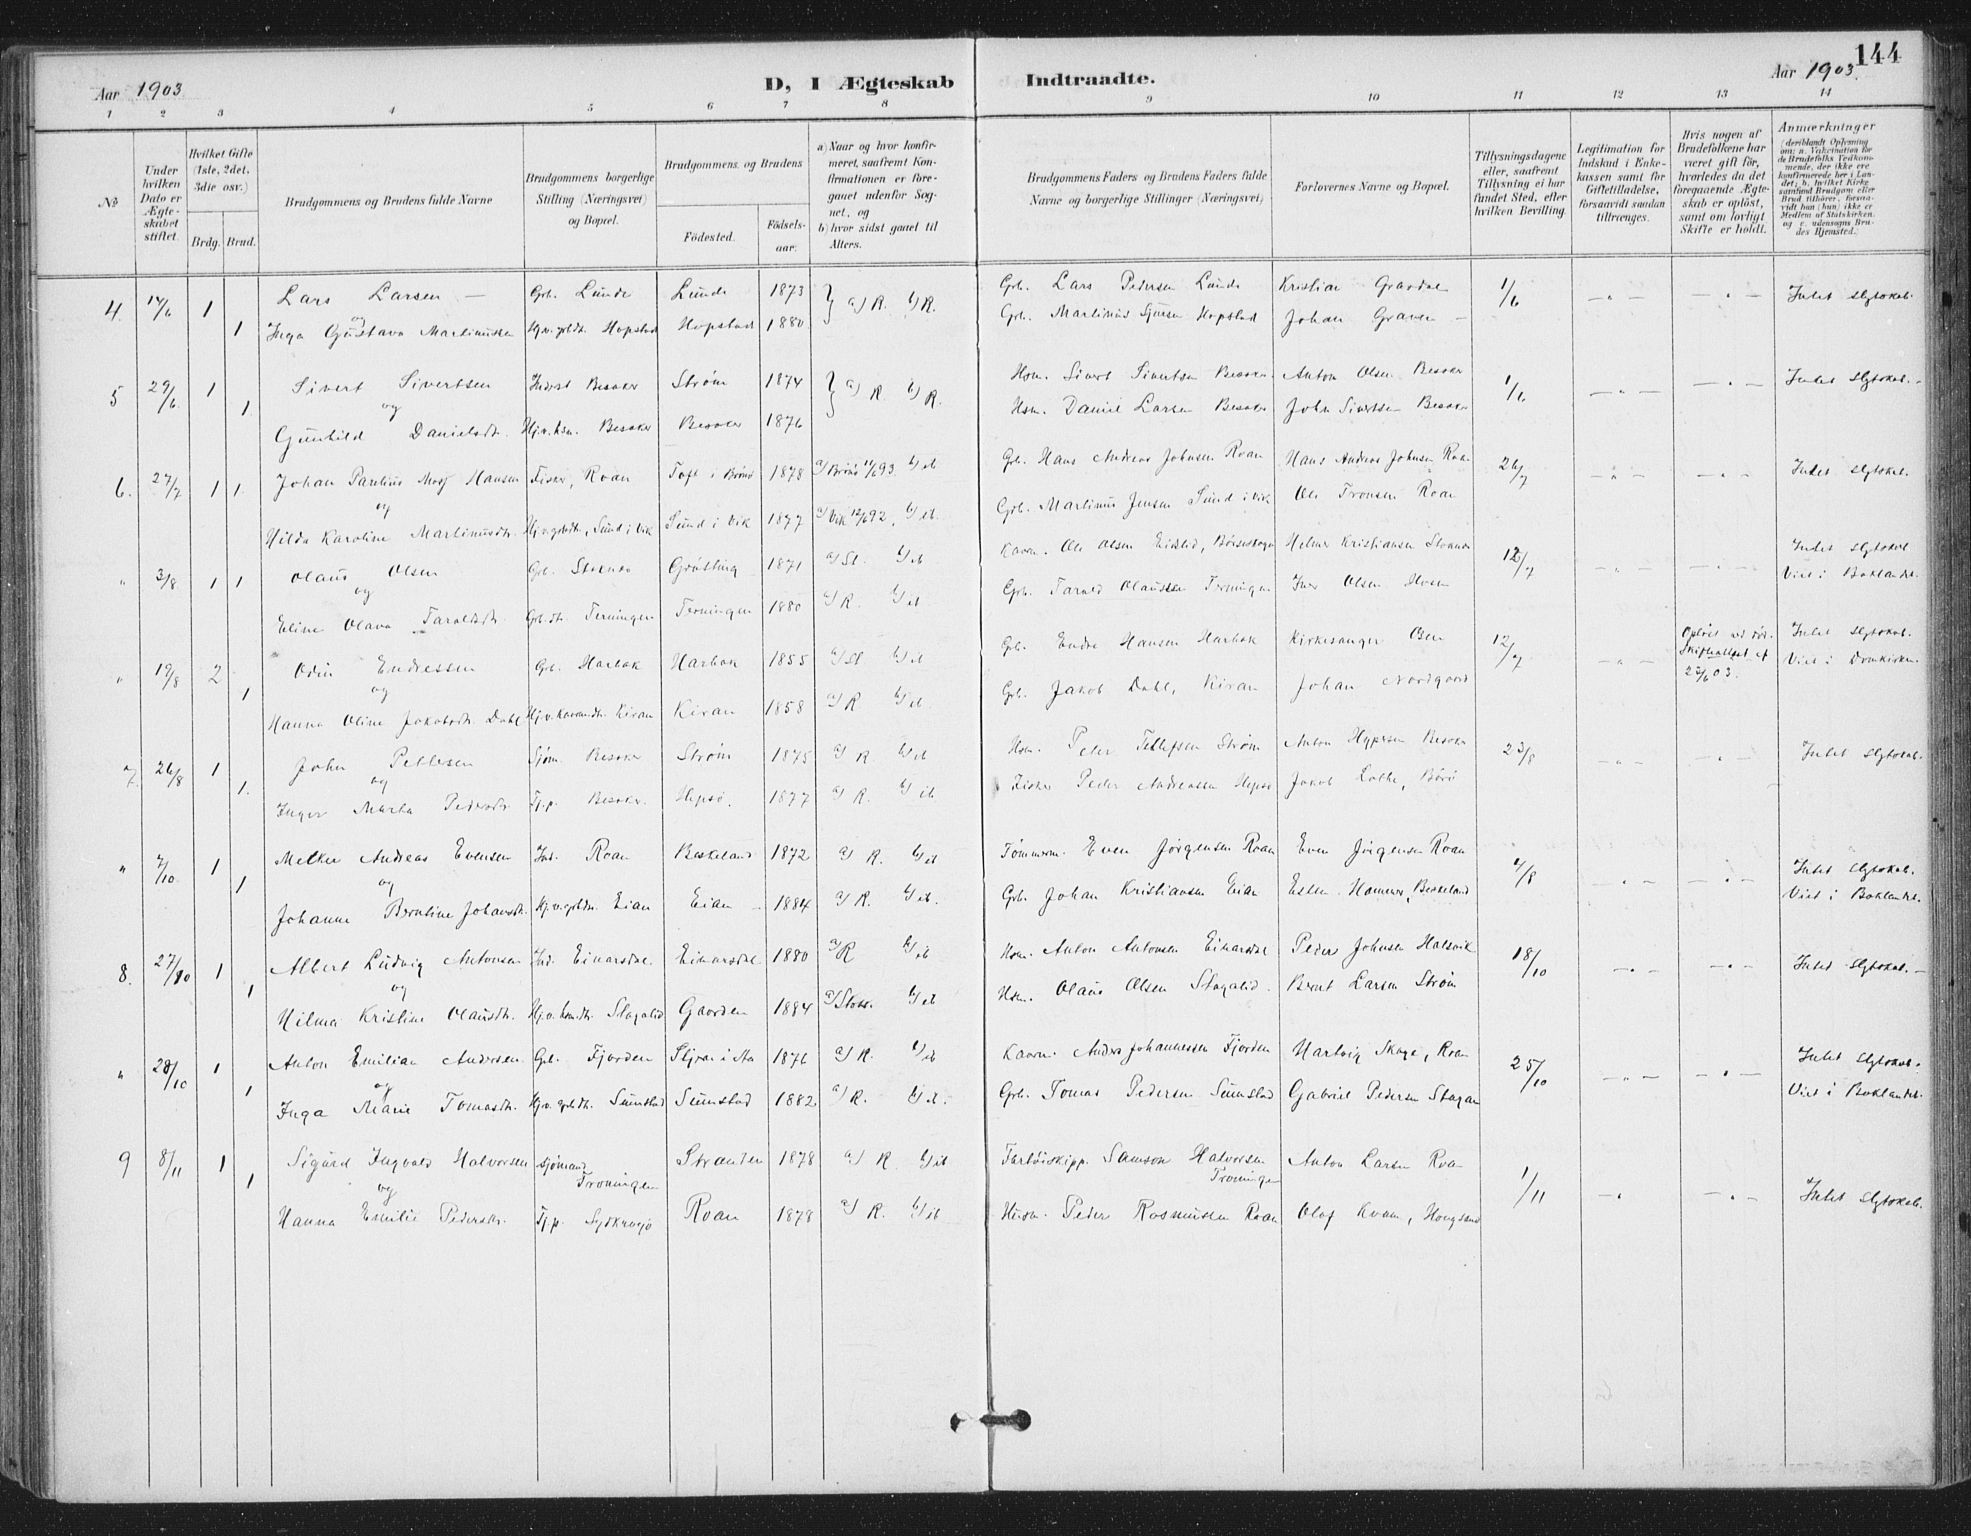 144
Aar 1903
D, I Ægteskab Indtraadte.
Aar 1903.
1 2 3 4 5 6 7 8 9 10 11 12 13 14
No
Under hvilken Dato er Ægteskabet stiftet.
Hvilket Gifte (1ste, 2det, 3die osv.)
Brdg. Brud.
Brudgommens og Brudens fulde Navne
Brudgommens borgerlige Stilling (Næringsvei) og Bopæl.
Brudgommens og Brudens
Födested.
Födselsaar.
a) Naar og hvor konfirmeret, saafremt Konfirmationen er foregaaet udenfor Sognet, og
b) hvor sidst gaaet til Alters.
Brudgommens Faders og Brudens Faders fulde Navne og borgerlige Stillinger (Næringsvei)
Forlovernes Navne og Bopæl.
Tillysningsdagene eller, saafremt Tillysning ei har fundet Sted, efter hvilken Bevilling.
Legitimation for Indskud i Enkekassen samt for Giftetilladelse, forsaavidt saadan tiltrænges.
Hvis nogen af Brudefolkene har været gift för, hvorledes da det foregaaende Ægteskab er oplöst, samt om lovligt Skifte er holdt.
Anmærkninger (deriblandt Oplysning om: a. Vakcination for de Brudefolks Vedkommende, der ikke ere konfirmerede her i Landet; b. hvilket Kirkesamfund Brudgom eller Brud tilhører, forsaavidt han (hun) ikke er Medlem af Statskirken, og c. udensogns Brudes Hjemsted.)
4. 14/6 1 Lars Larsen — Grb. Lunde Lunde 1873 a) R. b) R. Grb. Lars Pedersen Lunde Kristian Gravdal 1/6 Intet slgtskab.
og
1 Inga Gustava Martinussen Hj.v.grbdtr. Hopstad Hopstad 1880 Grb. Martinus Sjursen Hopstad Johan Graven —
5 29/6 1 Sivert Sivertsen Inderst Besaker Strøm 1874 a) R b) R. Hsm. Sivert Sivertsen Besaker Anton Olsen Besaker 1/6 Intet slgtskab. -
og
1. Gunhild Danielsdt. Hj.v.hsm. Besaker Besaker 1876 Hsm. Daniel Larsen Besaker John Sivertsen Besaker
6. 27/7 1 1. Johan Hansen Fisker, Roan Toft i Brønø 1878 b) ib Grb. Hans Andreas Johnsen Roan Hans Andreas Johnsen Roan 26/7 Intet slgtskab.
og
Hilda Karoline Martinusdtr. Hj.v.grbdtr., Sund i Vik Sund i Vik 1877 a) Vik b) ib. Grb. Martinus Jensen Sund i Vik Ole Tronsen Roan
" 3/8 1 1 Olaus Olsen Grb. Stoknes 1871 a) St. b) ib Ole Olsen Helmer Kristiansen Stoknes 12/7 Intet slgtskab
og
Viet i Boklandet.
Eline Olava Taraldsdtr. Grb.dt. Terningen Terningen 1880 a) R. b) ib Grb. Tarald Olaussen Terningen Iver Olsen Hosen
" 19/8 2 Odin Endressen Grb. Harbak Harbak 1855 a) St b) ib Grb. Endre Hansen Harbak Kirkesanger Osen 12/7 Opløst ved død. Skifteattest af 22/6 03. Intet slgtskab.
og
Viet i Domkirken.
1 Hanna Oline Jakobsdt. Dahl Kiran Kiran 1858 a) R b) ib. Grb. Jakob Dahl, Kiran Johan Nordgaard
7. 26/8 1 John Petlesen Sjøm. Besaker Strøm 1875 a) R b) ib Hsm. Peter Tellefsen Strøm Anton Besaker 23/8 Intet slgtskab.
og
1. Inger Marta Pedersdt. Tj.p. Besaker. Hepsø. 1877 a) R. b) ib Fisker Peder Andreassen Hepsø Jakob Børø
" 7/10 1 Melker Andreas Evensen Ind. Roan Beskeland 1872 a) R. b) ib Tømmerm. Even Jørgensen Roan Even Jørgensen Roan Intet slgtskab.
og
Viet i Boklandet.
1 Johanne Berntine Johansdt. Hj.v.grbdtr. Eian Eian 1884 a) R. b) ib. Grb. Johan Kristiansen Eian Esten Hammer, Beskeland
8. 27/10 1 Albert Ludvig Antonsen Ind. Einarsdal Einarsdal 1880 a) R b) ib Hsm. Anton Antonsen Einarsdal Peder Johnsen Halsvik 18/10 Intet slgtskab. -
og
1 Hilma Kristine Olausdtr. Hj.v.hsmdtr. Stagalid Gaarden 1884 b) ib Hsm. Olaus Olsen Stagalid. Bernt Larsen Strøm
" 28/10 1 Anton Emilian Andersen Grb. Fjorden 1876 a) R. b) ib Kaarm. Anders Johannessen Fjorden Hartvig Skage, Roan 25/10 Intet slgtskab.
og
Viet i Boklandet.
1 Inga Marie Tomasdtr. Hj.v.grbdtr. Sumstad Sumstad 1882 a) R. b) ib. Grb. Tomas Pedersen Sumstad Gabriel Pedersen
9 8/11 1 Sigurd Ingvald Halvorsen Sjømand Terningen Stranden 1878 a) R. b) ib Samson Halvorsen Terningen Anton Larsen Roan 1/11 Intet slgtskab.
og
1 Hanna Emilie Pedersdtr. Tj.p. Roan 1878 a) R. b) ib Husm. Peder Rasmussen Roan Olaf Kvam,